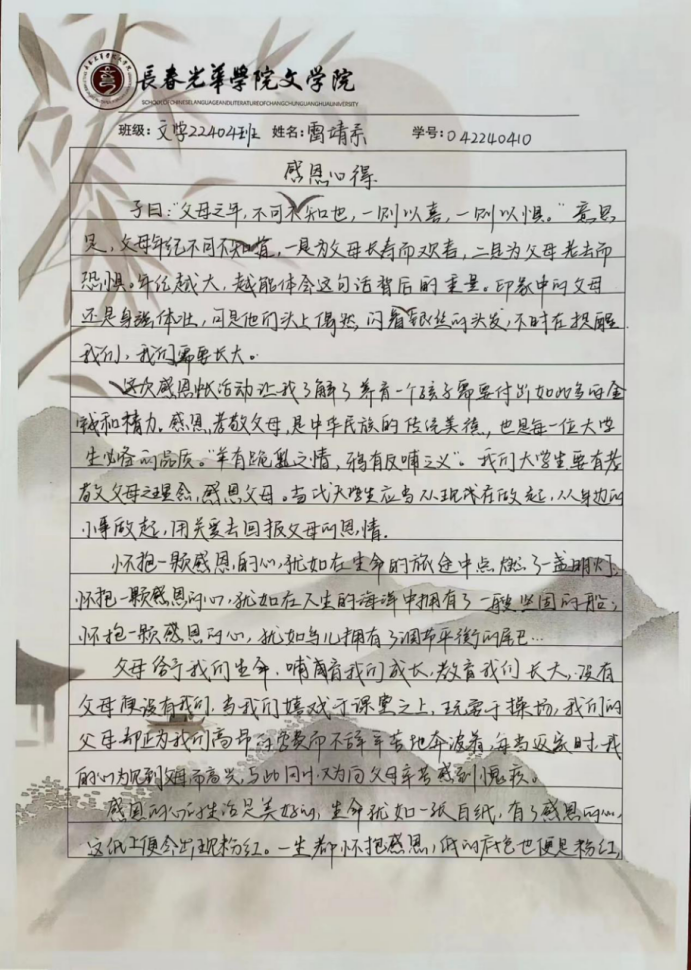 長春光華學院文学院
SCHOOL OF CHINESE LANGUAGE AND LITERATURE OF CHANGCHUN GUANGHUA UNIVERSITY
班级：文学22404班 姓名：雷靖 学号：042240410
感恩心得
子曰："父母之年，不可不知也，一则以喜，一则以惧。"意思
是，父母年纪不可不知道，一是为父母长寿而欢喜，二是为父母老去而
恐惧。年纪越大，越能体会这句话背后的重量。印象中的父母
还是身强体壮，可是他们头上偶然闪着银丝的头发，不时在提醒
我们，我们需要长大。
这次感恩帐活动让我了解了养育一个孩子需要付出如此多的金
钱和精力。感恩、孝敬父母，是中华民族的传统美德，也是每一位大学
生必备的品质。"羊有跪乳之情，鸦有反哺之义"。我们大学生要有孝
敬父母之理念，感恩父母。当代大学生应当从现在做起，从身边的
小事做起，用关爱去回报父母的恩情。
怀抱一颗感恩的心，犹如在生命的旅途中点燃了一盏明灯，
怀抱一颗感恩的心，犹如在人生的海洋中拥有了一艘坚固的船；
怀抱一颗感恩的心，犹如鸟儿拥有了调节平衡的尾巴…
父母给予我们生命，哺育我们成长，教育我们长大，没有
父母便没有我们，当我们嬉戏于课堂之上，玩耍于操场，我们的
父母却正为我们高昂的学费而不辞辛苦地奔波着，每当返家时，我
们为见到父母而高兴，与此同时又为父母辛苦感到愧疚。
感恩的心的生活是美好的，生命犹如一张白纸，有了感恩的心，
这纸上便会出现粉红。一生都怀抱感恩，纸的底色也便是粉红，